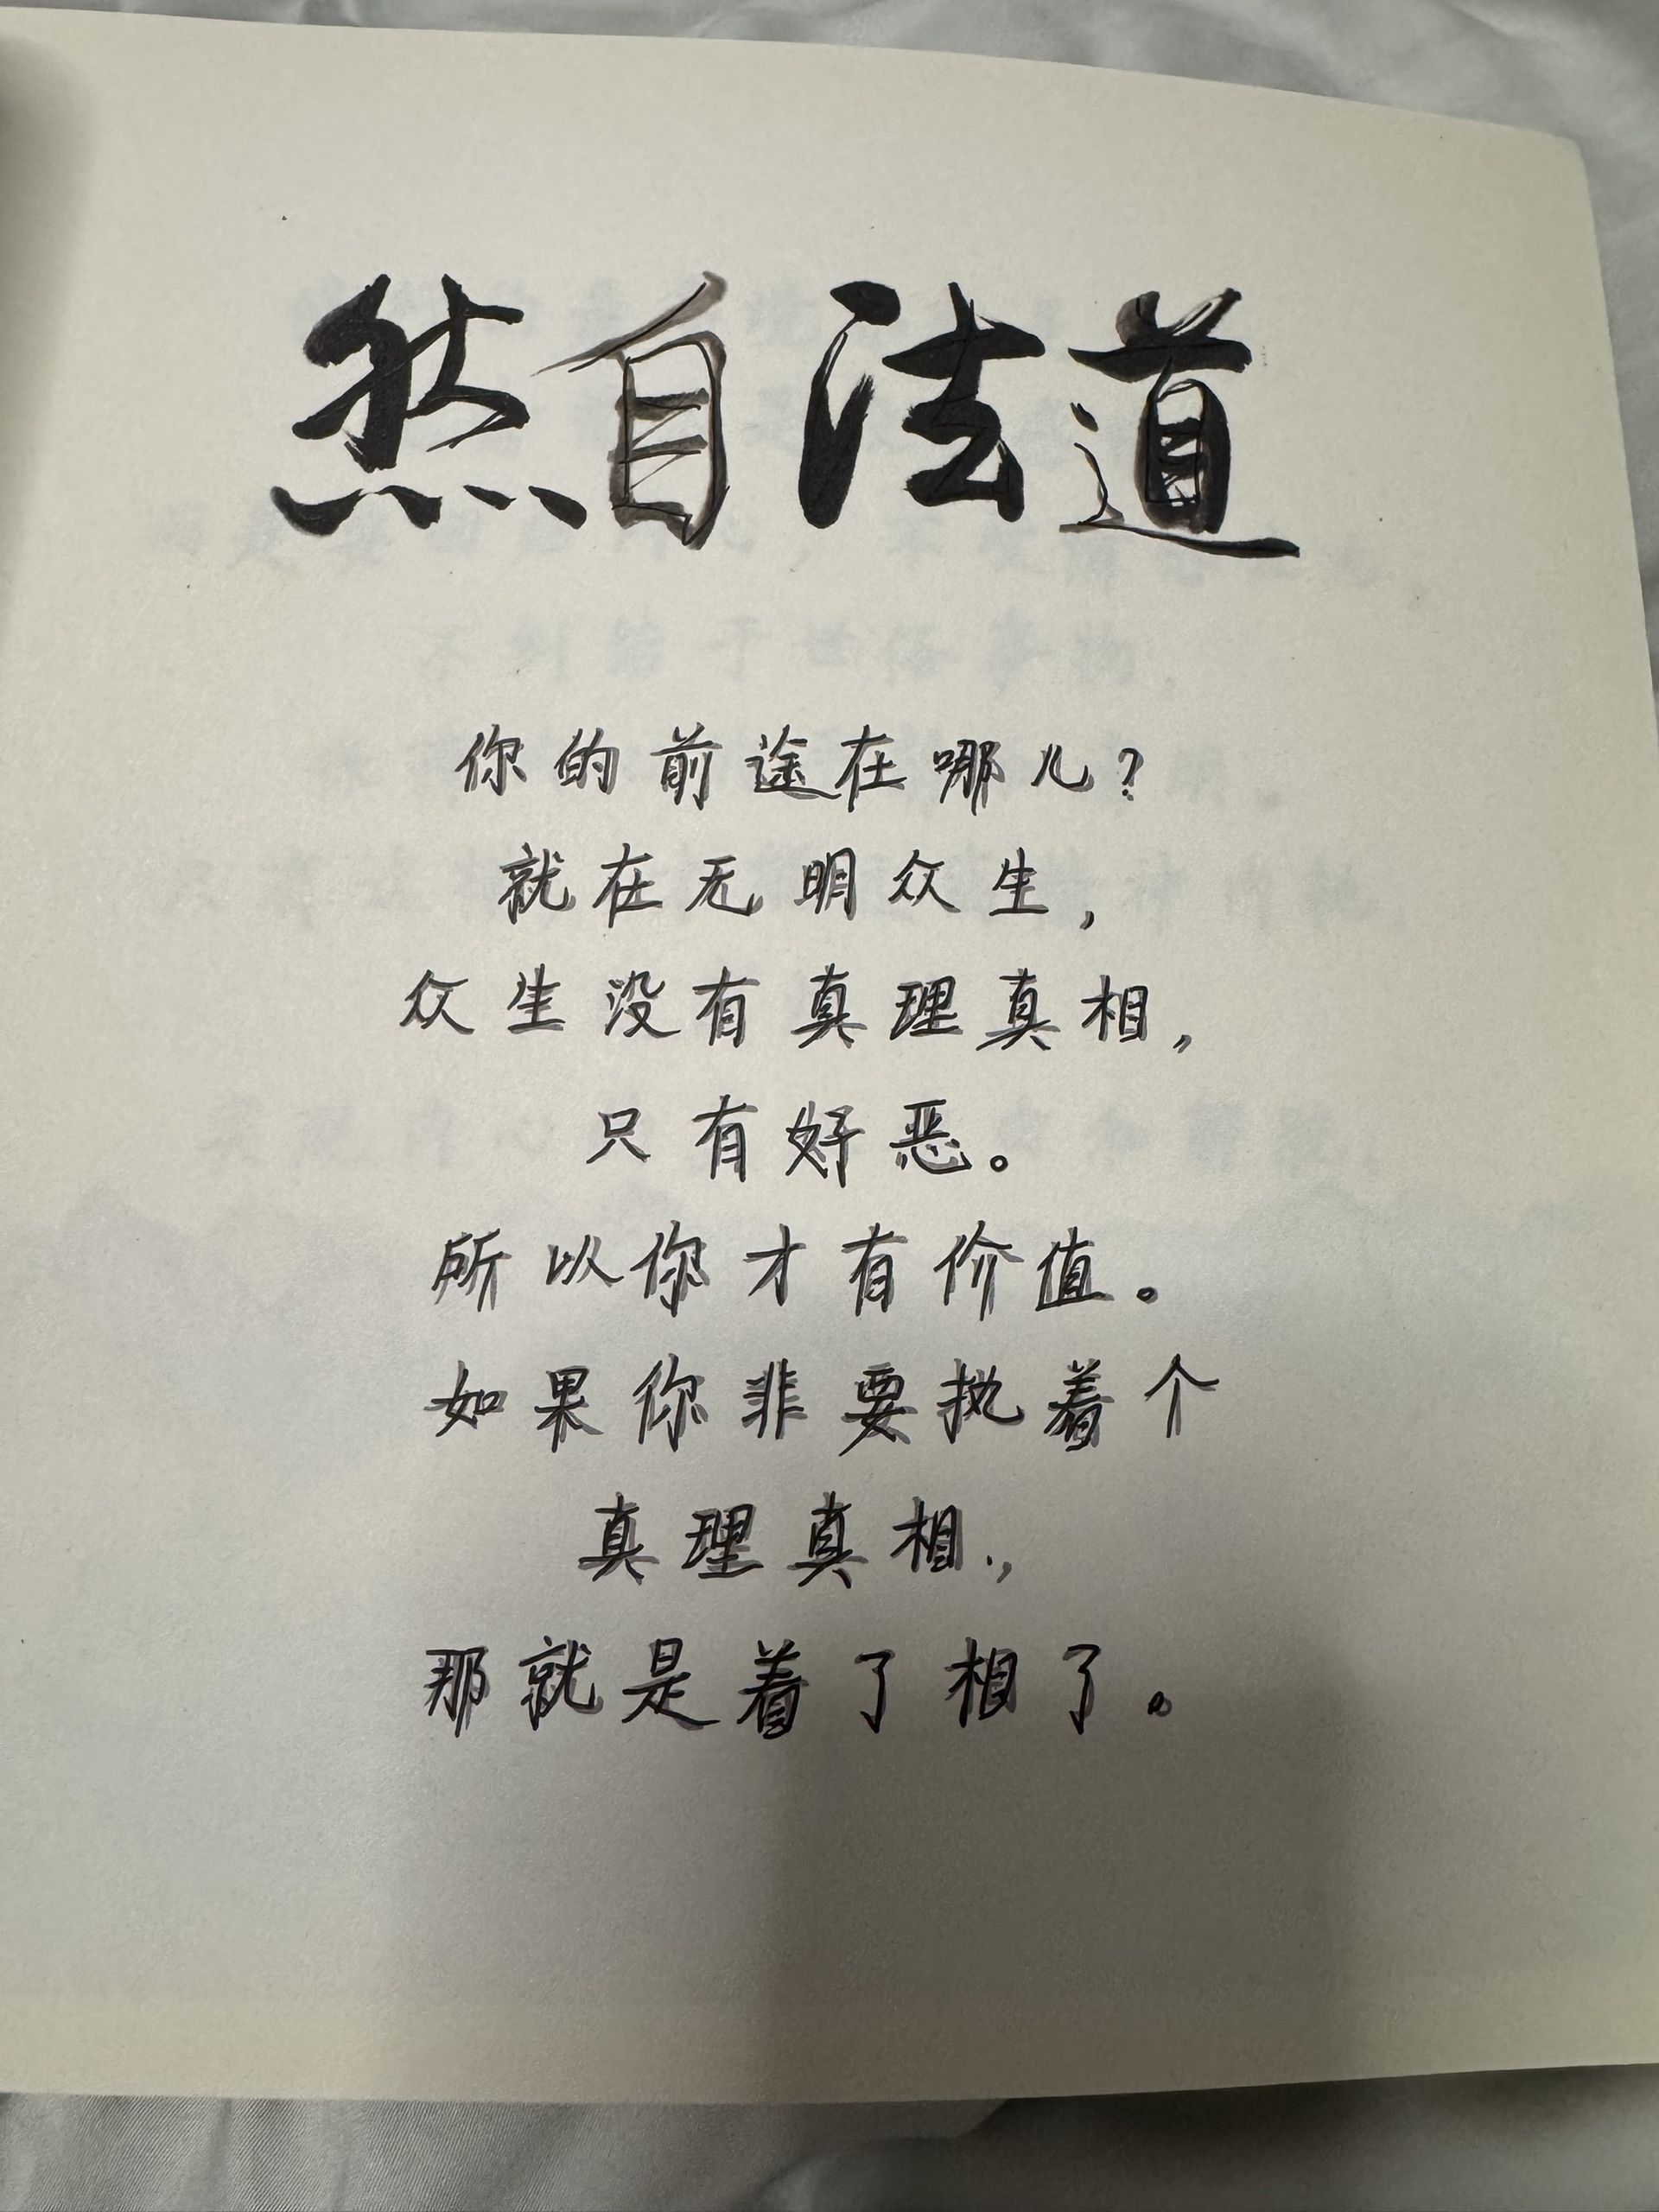 道法自然
你的前途在哪儿？
就在无明众生，
众生没有真理真相，
只有好恶。
所以你才有价值。
如果你非要执着个
真理真相，
那就是着了相了。